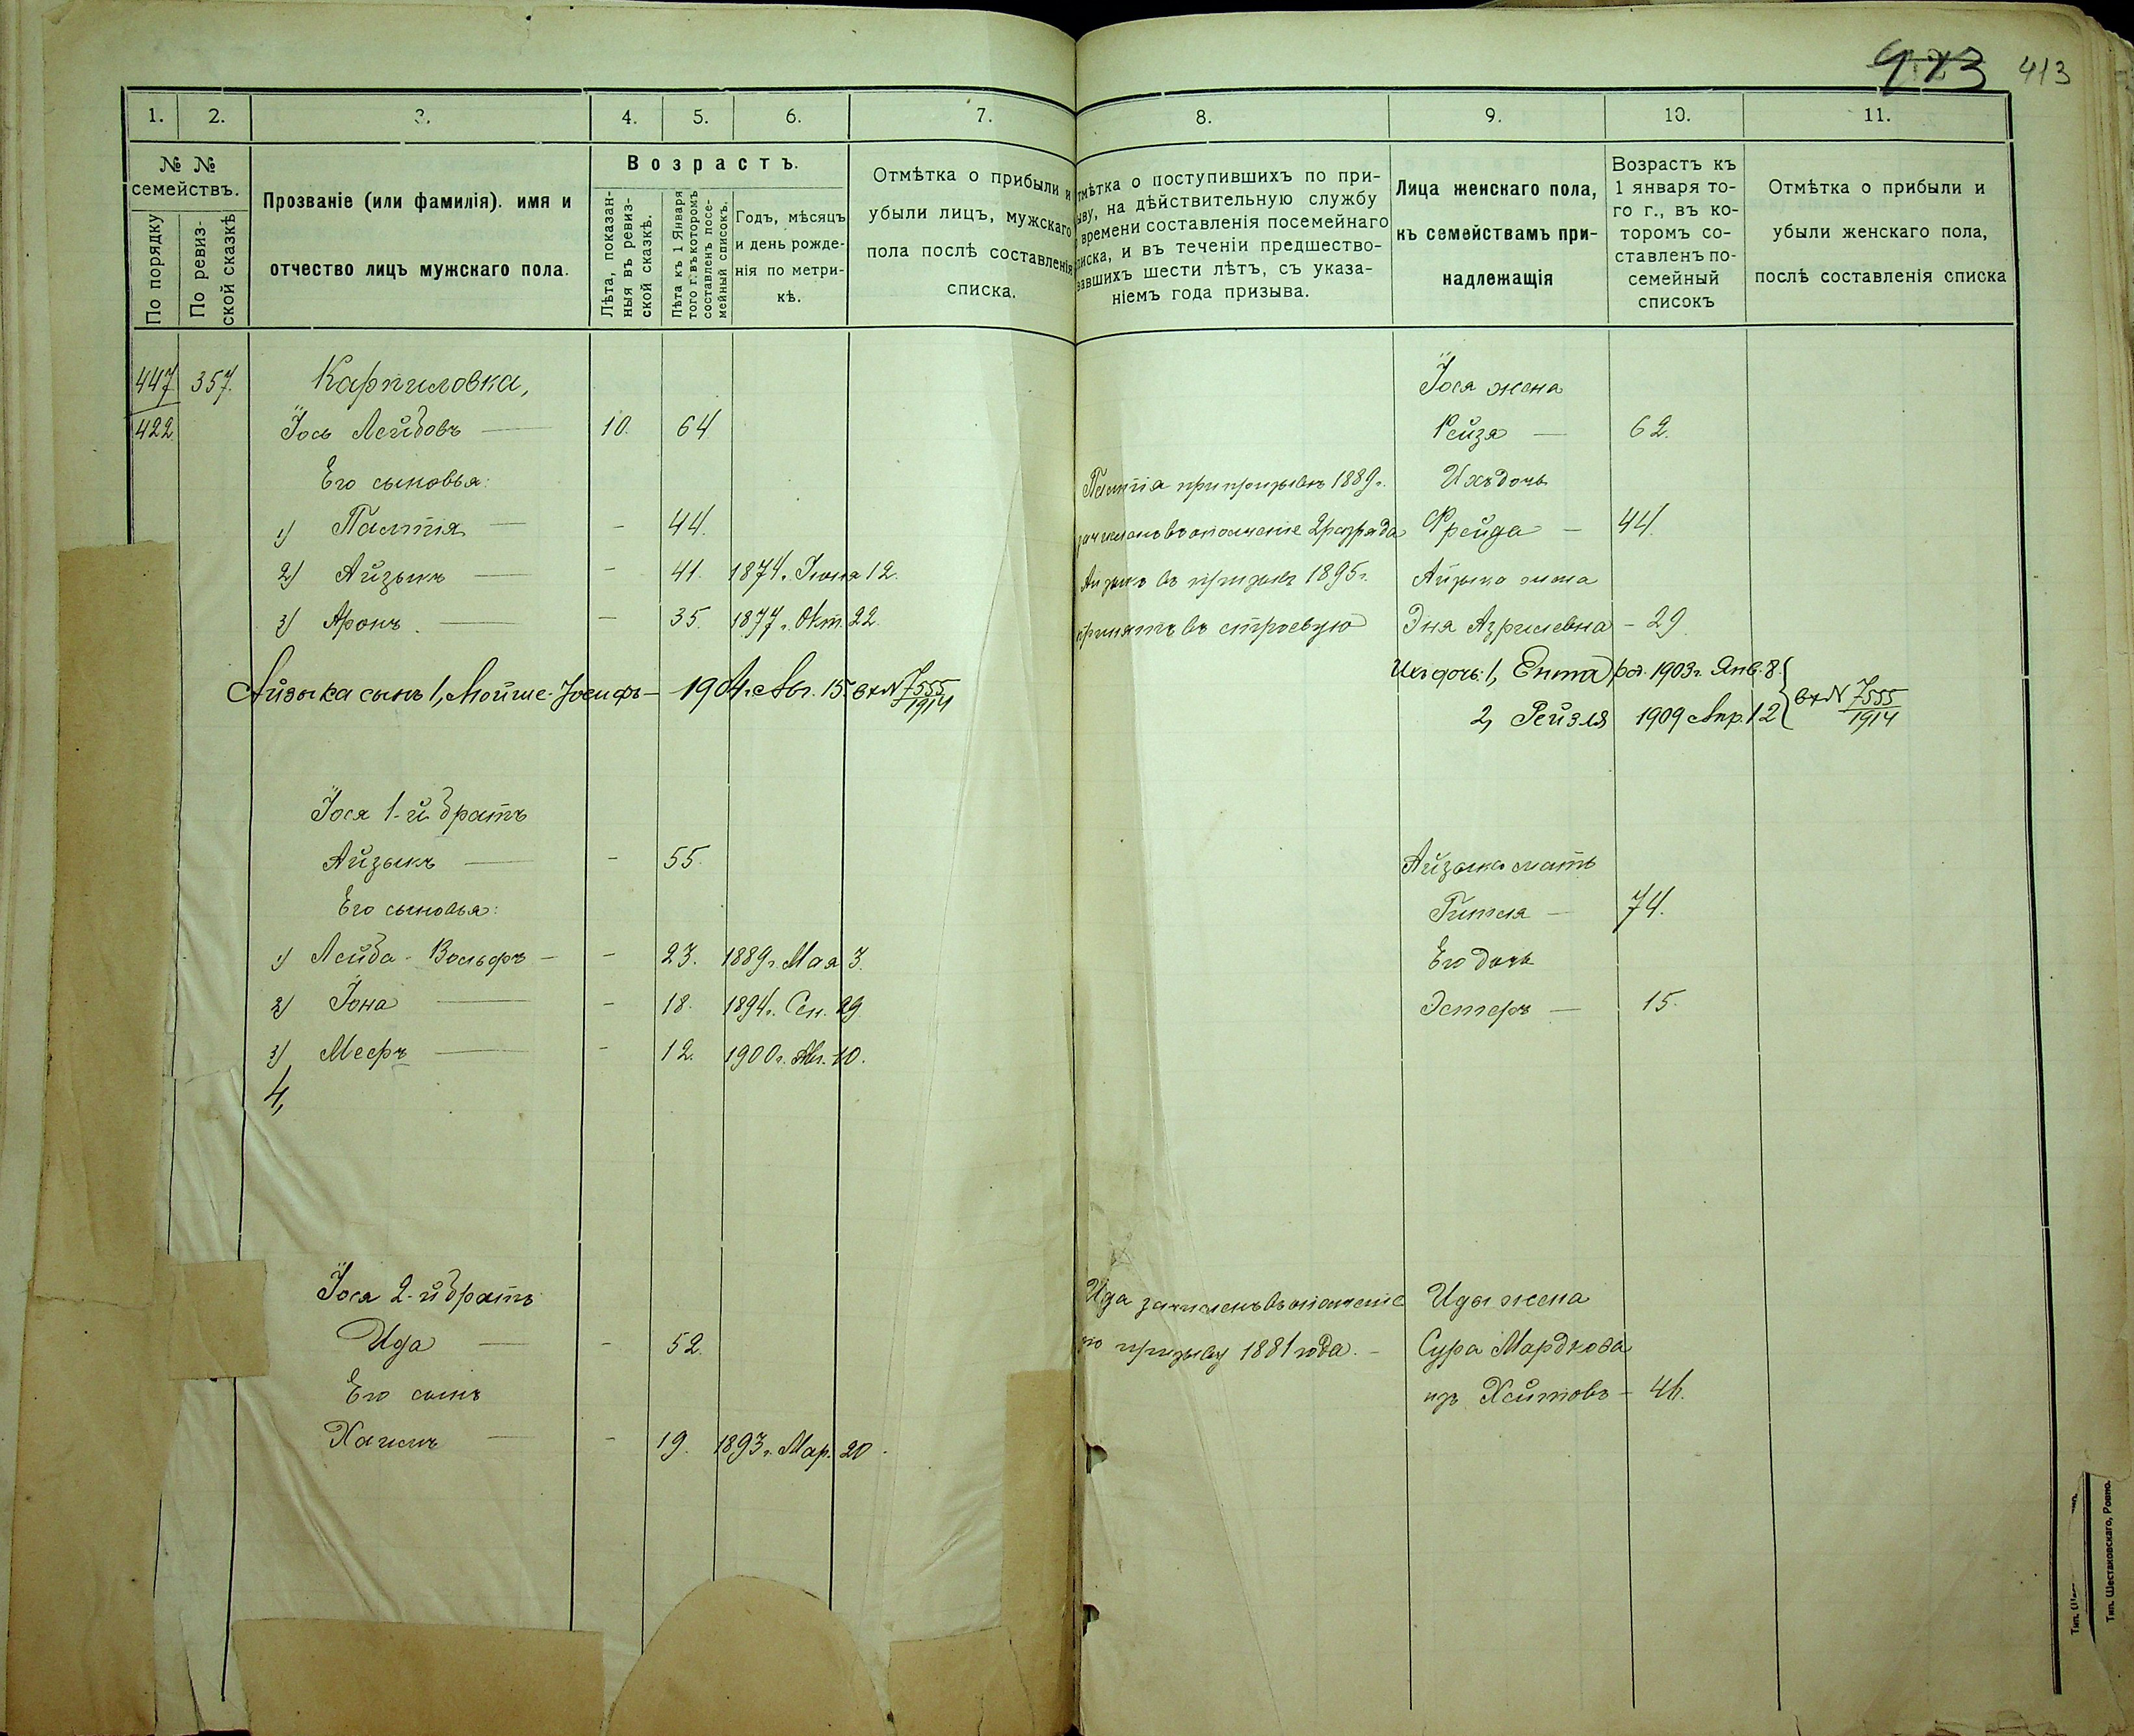 413
1. 2. 3. 4. 5. 6. 7. 8. 9. 10. 11.
№ № семействъ.
По порядку
По ревизской сказкѣ
Прозваніе (или фамилія). имя и
отчество лицъ мужскаго пола.
Возрастъ.
Лѣта, показан-
ныя въ ревиз-
ской сказкѣ.
Лѣта къ 1 Января
того г. въ которомъ
составленъ посе-
мейный списокъ.
Годъ, мѣсяцъ
и день рожде-
нія по метри-
кѣ.
Отмѣтка о прибыли и
убыли лицъ, мужскаго
пола послѣ составленія
списка.
Отмѣтка о поступившихъ по при-
зыву, на дѣйствительную службу
времени составленія посемейнаго
списка, и въ теченіи предшество-
вавшихъ шести лѣтъ, съ указа-
ніемъ года призыва.
Лица женскаго пола,
къ семействамъ при-
надлежащія
Возрастъ къ
1 января то-
го г., въ ко-
торомъ со-
ставленъ по-
семейный
списокъ
Отмѣтка о прибыли и
убыли женскаго пола,
послѣ составленія списка
447 357. Карпиловка, Іося жена
422 Іось Лейбовъ 10. 64 Рейзя 62.
Его сыновья: Палтія при призывѣ 1889 г. Ихъ дочь
1) Палтія - 44. зачисленъ въ ополченіе 2 разряда Фрейда 44.
2) Айзыкъ - 41. 1874 г. Іюня 12. Айзыкъ въ призывъ 1895 г. Айзыка жена
3) Аронъ - 35. 1877 г. Окт. 22. принятъ въ строевую Эня Азрилевна - 29
Айзыка сынъ 1, Мойше-Іосифъ - 1904 г. Авг. 15. вх № 7555/1914 Ихъ дочь: 1, Ента рож. 1903 г. Янв. 8.
2, Рейзля 1909 Апр. 12 вх № 7555/1914
Іося 1-й братъ
Айзыкъ - 55. Айзыка мать
Его сыновья: Гитля - 74.
1) Лейба-Вольфъ - - 23. 1889 г. Мая 3. Его дочь
2) Іона - 18. 1894 г. Сен. 29 Эстеръ - 15.
3) Мееръ - 12. 1900 г. Авг. 10.
4,
Іося 2-й братъ Ида зачисленъ въ ополченіе Иды жена
Ида - 52. по призыву 1881 года. - Сура Мардкова
Его сынъ изъ - 46.
Хаимъ - 19. 1893 г. Мар. 20.
Тип. Шестаковскаго, Ровно.